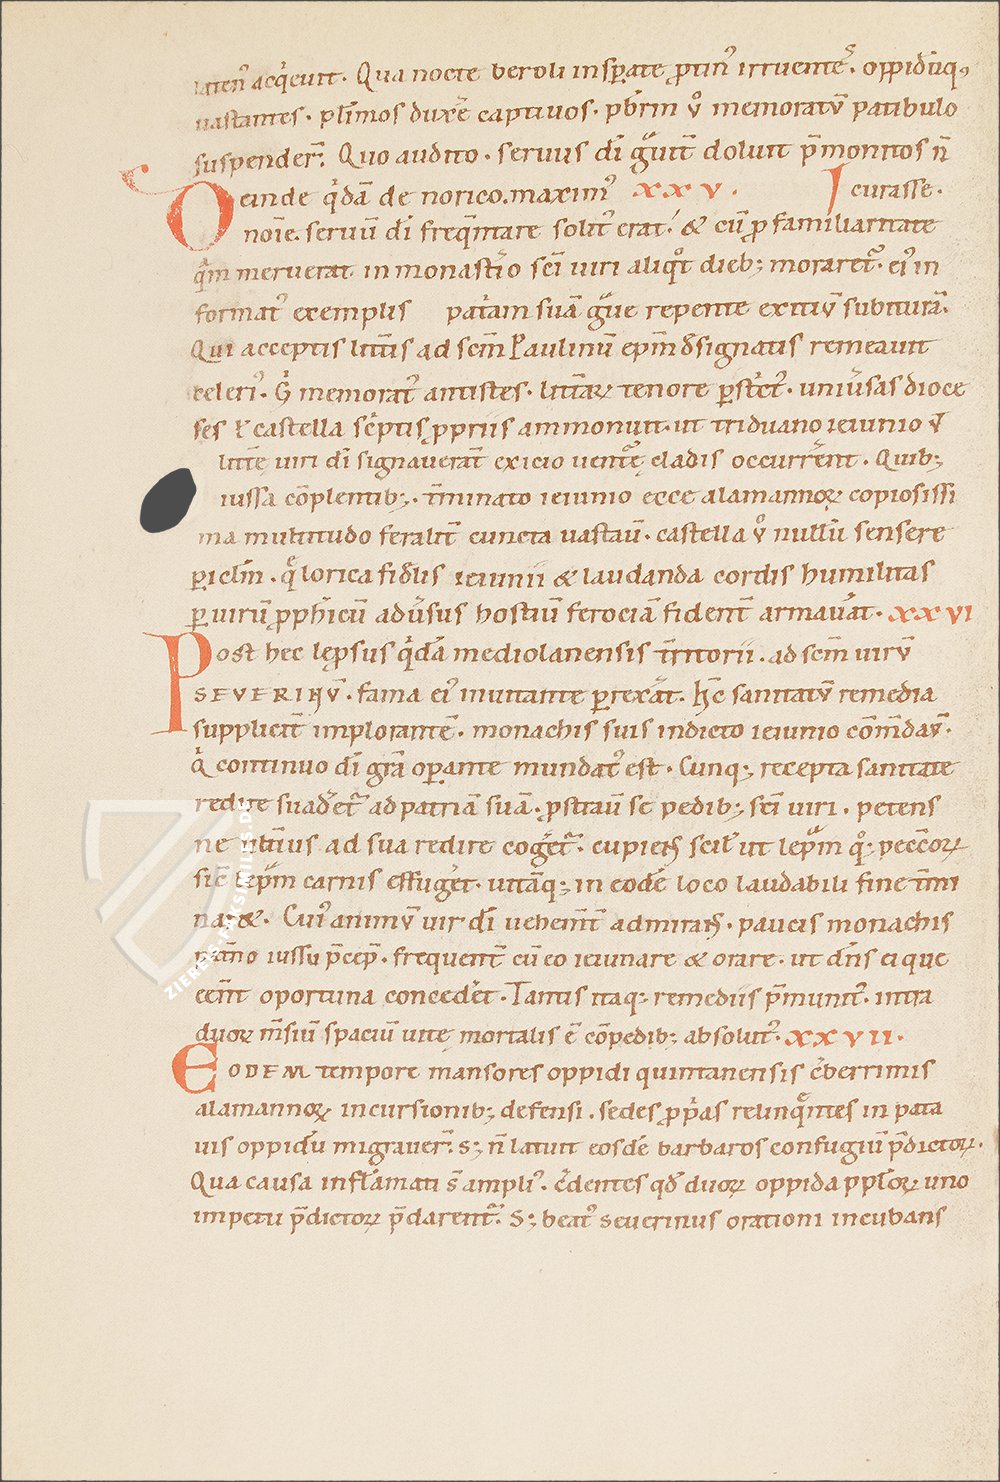 latenť acq̇euit. Qua nocte heroli insꝑate ꝓtinꝰ irruentes. oppidūq;
uastantes. plꝛimos duxē captiuos. pb̄rm v̊ memoratū patibulo
suspender̄. Quo audito. seruus dī gͣuit̄ doluit p̄monitos n̄
Deinde q̇dā de norico. maximꝰ xxv. curasse.
noīe. seruū dī freq̄ntare solitꝰ erat. & cū ꝓ familiaritate
qͣm meruerat in monastīo sc̄i uiri aliqͦt dieb; morareť. eiꝰ in
formatꝰ exemplis pat̄am suā gͣue repente exitiū subiturā.
Qui acceptis litt̄is ad sc̄m Paulinū ep̄m dsignatis remeauit
celeriꝰ. Gͥ memoratꝰ antistes. litt̄aꝝ tenore ꝑstͥctꝰ. uniūsas dioce
ses ł castella scͥptis ꝓpriis ammonuit. ut triduano ieiunio v̄
litt̄ę uiri dī signauerat̄ exicio uentͣę cladis occurrēent. Quib;
iussa cōplentib;. t̄minato ieiunio ecce alamannoꝝ copiosissi
ma multitudo feralit̄ cuncta uastauͥ. castella v̊ nullū sensere
ꝑiclm̄. qͦ lorica fidͥlis ieiunii & laudanda cordis humilitas
ꝑ uirū ꝓph̄icū adūsus hostiū ferociā fident̄ armauͣat. xxvi
Post hec lep̄sus q̇dā mediolanensis t̄ritorii. ad sc̄m uirū
SEVERINV̄. fama eiꝰ inuitante ꝑrexͣat. Hc̄ sanitatū remedia
supplicit̄ implorantē. monachis suis indicto ieiunio cōm̄dauͥ.
q̇ continuo dī grā oꝑante mundatꝰ est. Cunq; recepta sanitate
redire suadͤret̉ ad patriā suā. ꝓstrauͥ se pedib; sc̄i uiri. petens
ne ult̄ius ad sua redire cogͤreť. cupiens scil̄ ut lepͣm qͦ; peccͣoꝝ
sic̄ lepͣm carnis effugͤet. uitāq; in eodē loco laudabili fine t̄mi
naret. Cuiꝰ animū uir dī uehem̄t̄ admirans. paucis monachis
p̄cep̄. frequent̄ cū eo ieiunare & orare. ut dn̄s ei que
cem̄t oportuna concedͤet. Tantis itaq; remediis p̄munitꝰ. intra
duoꝝ m̄siū spaciū uite mortalis ē cōpedib; absolutꝰ. xxvii.
EODEM tempore mansores oppidi quintanensis cͤberrimis
alamannoꝝ incursionib; defensi. sedes ꝓpͥas relinqͦntes in pata
uis oppidū migrauer̄. S; n̄ latuit eosdē barbaros confugiū p̄dictoꝝ.
Qua causa inflāmati s̄ ampliꝰ. cͤdentes qd̄ duoꝝ oppida pplōꝝ uno
impetu p̄dictoꝝ p̄darentͬ. S; beatꝰ seuerinus orationi incubans